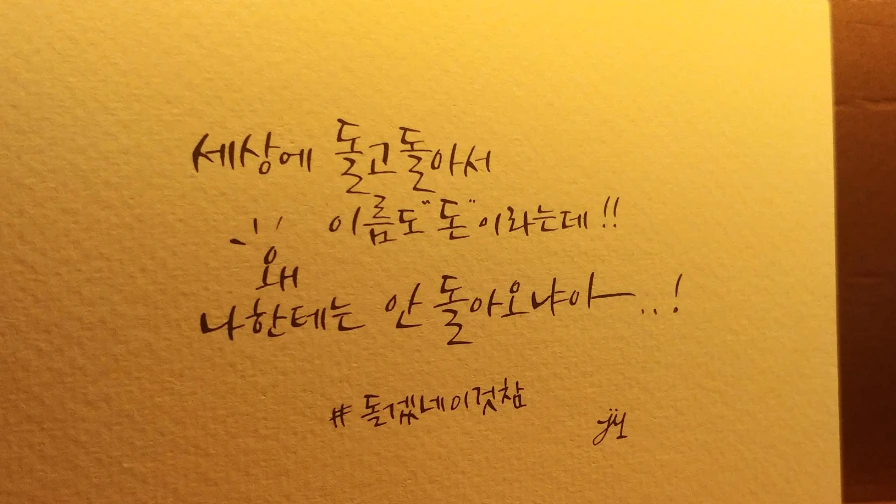 세상에 돌고돌아서
이름도 "돈"이라는데!!
왜
나한테는 안 돌아오냐아ㅡ...!
#돌겠네이것참